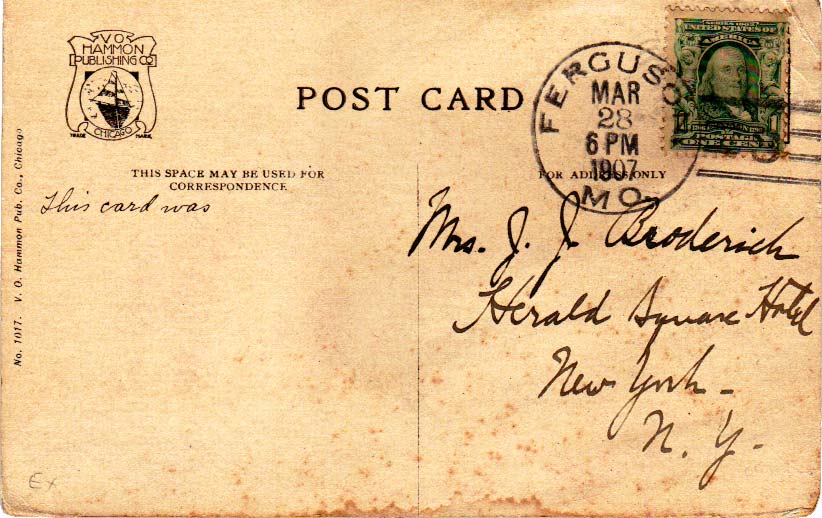 V.O.
HAMMON
PUBLISHING CO
CHICAGO
TRADE MARK
POST CARD
FERGUSON
MAR
28
6 PM
1907
MO.
SERIES 1902
UNITED STATES OF
AMERICA
FRANKLIN
POSTAGE
1 ONE CENT 1
THIS SPACE MAY BE USED FOR
CORRESPONDENCE
FOR ADDRESS ONLY
This card was
Mrs. J. J. Broderick
Herald Square Hotel
New York -
N. Y. -
No. 1017. V. O. Hammon Pub. Co., Chicago
Ex